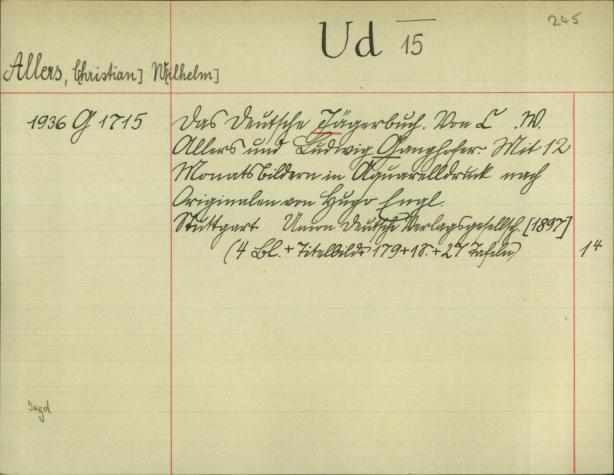 245
Ud 15
Allers, C[hristian] W[ilhelm]
1936 G 1715
Das Deutsche Jägerbuch. Von C. W.
Allers und Ludwig Ganghofer. Mit 12
Monatsbildern in Aquarelldruck nach
Originalen von Hugo Engl.
Stuttgart Union Deutsche Verlagsgesellsch. [1897]
(4 Bl. + Titelbild + 179 + 1 S. + 27 Tafeln) 14
Jagd